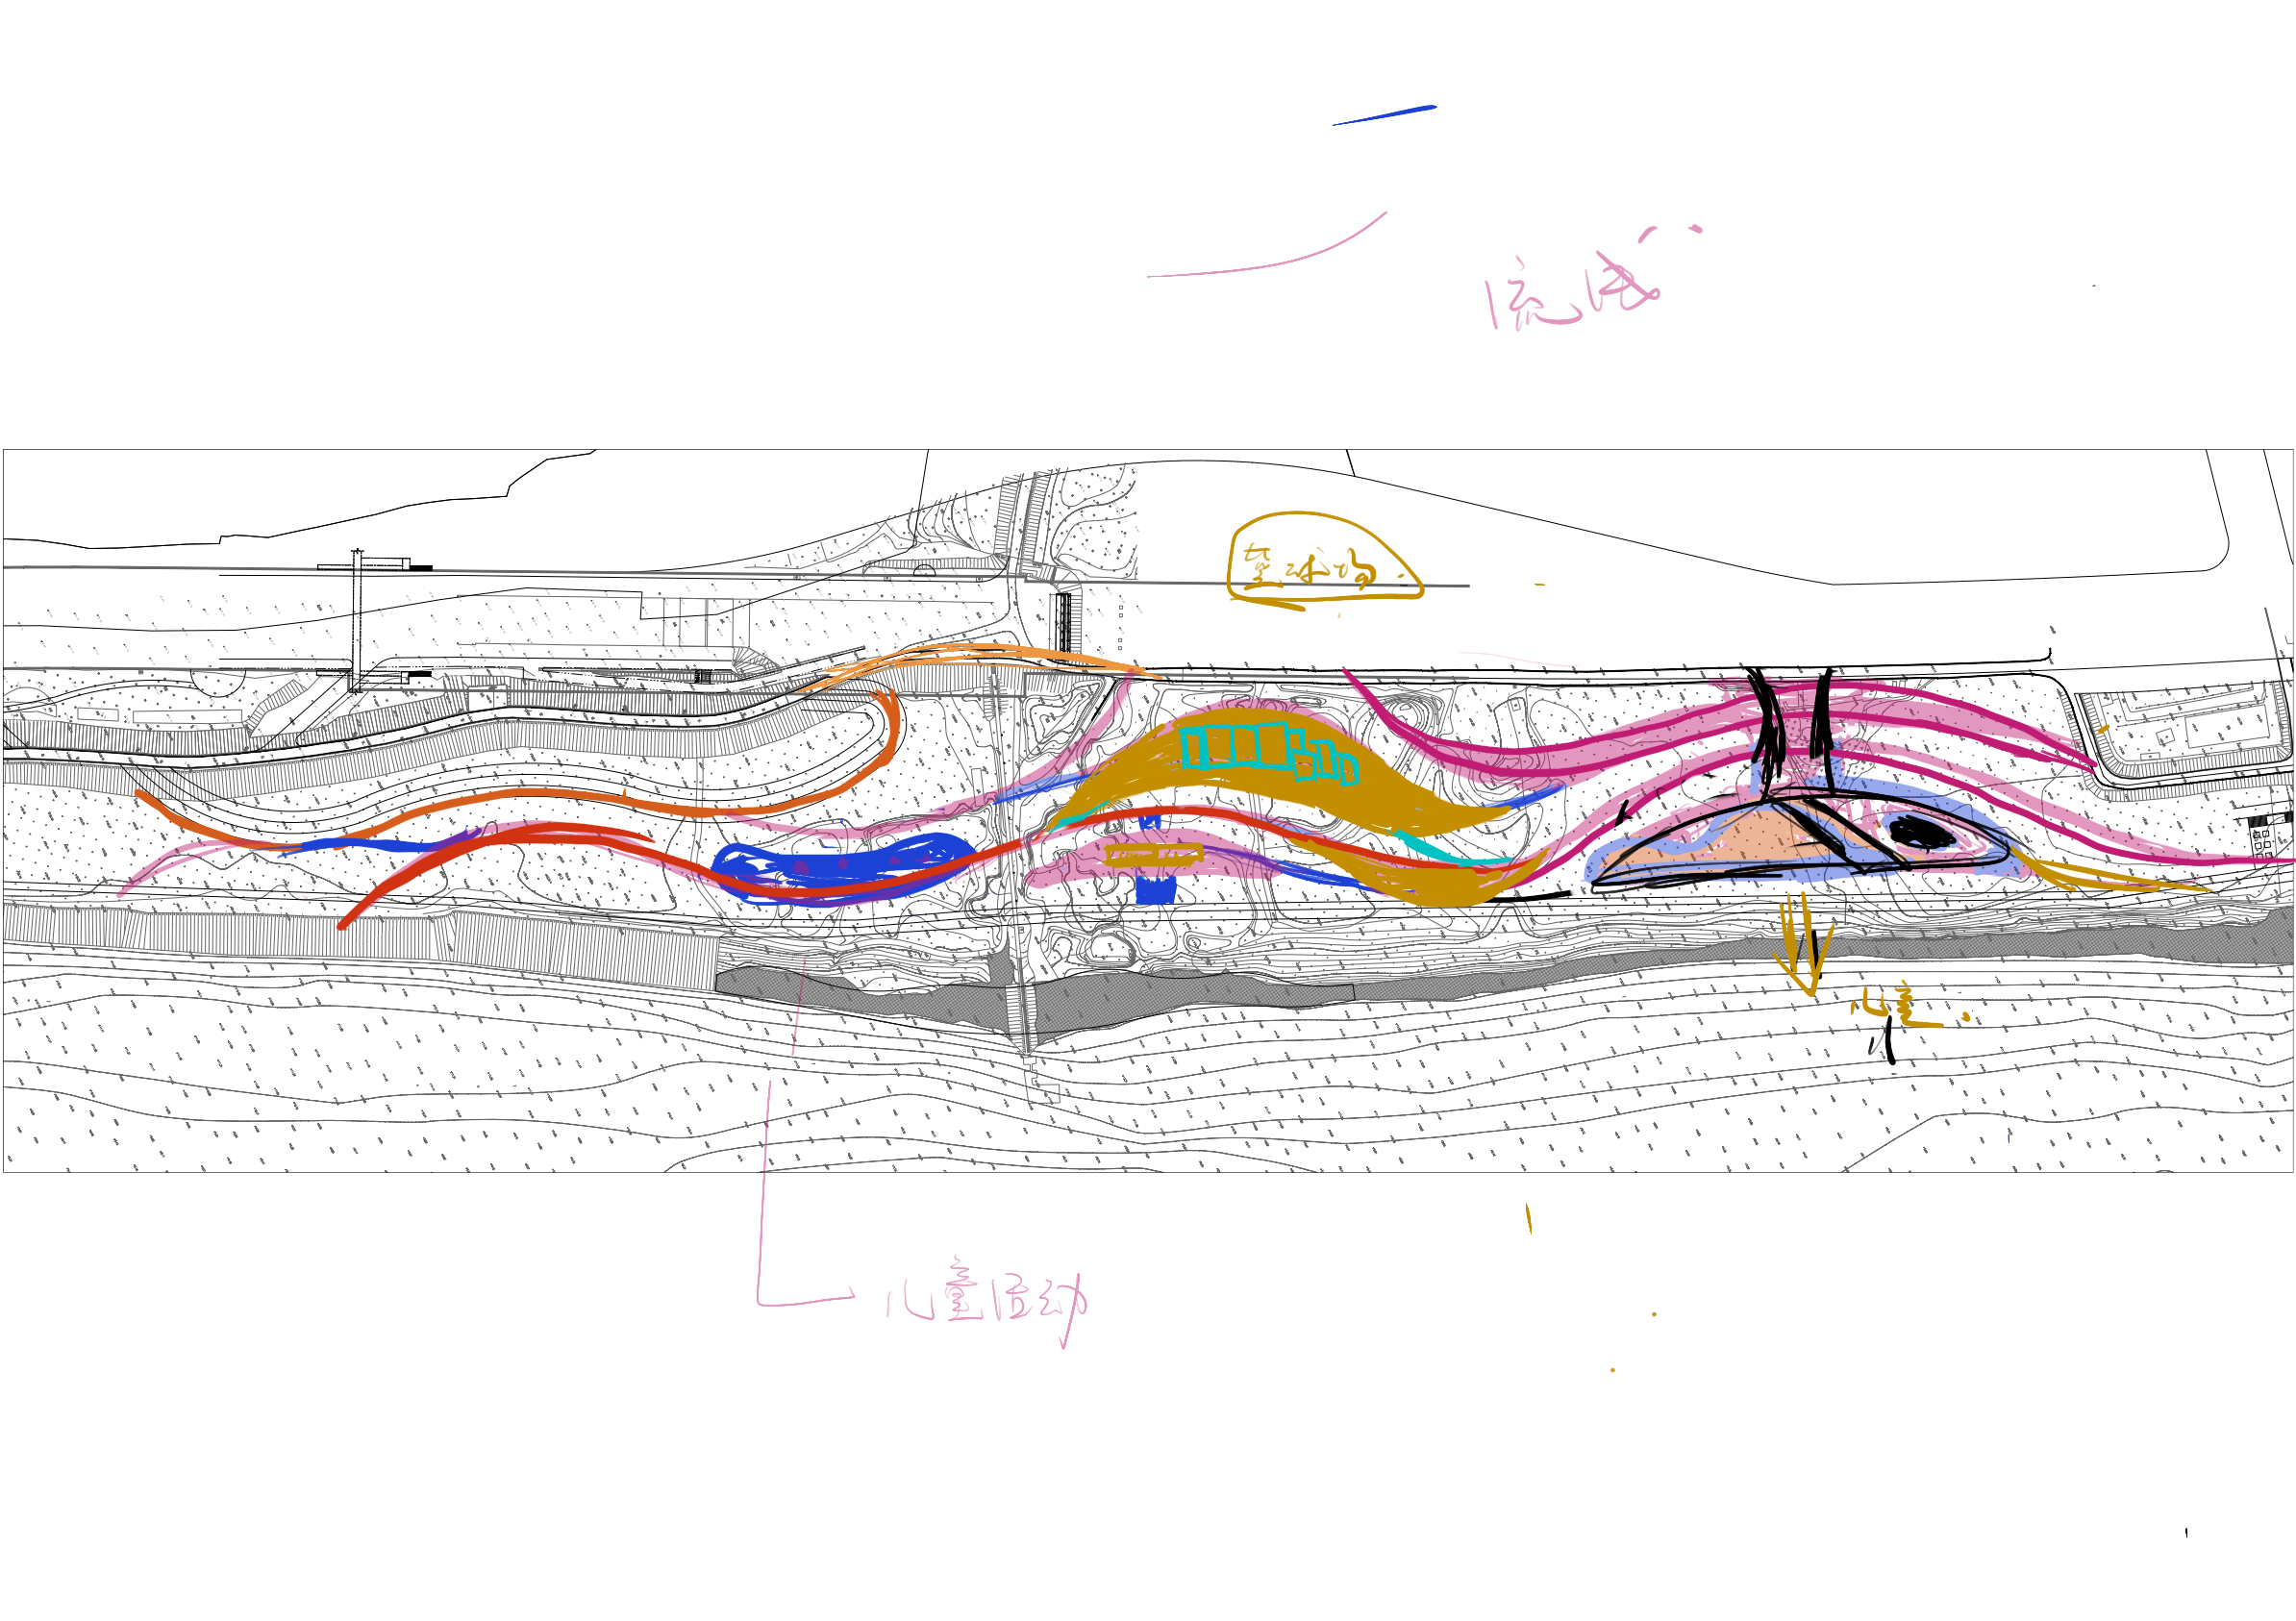 篮球场
儿童
儿童活动